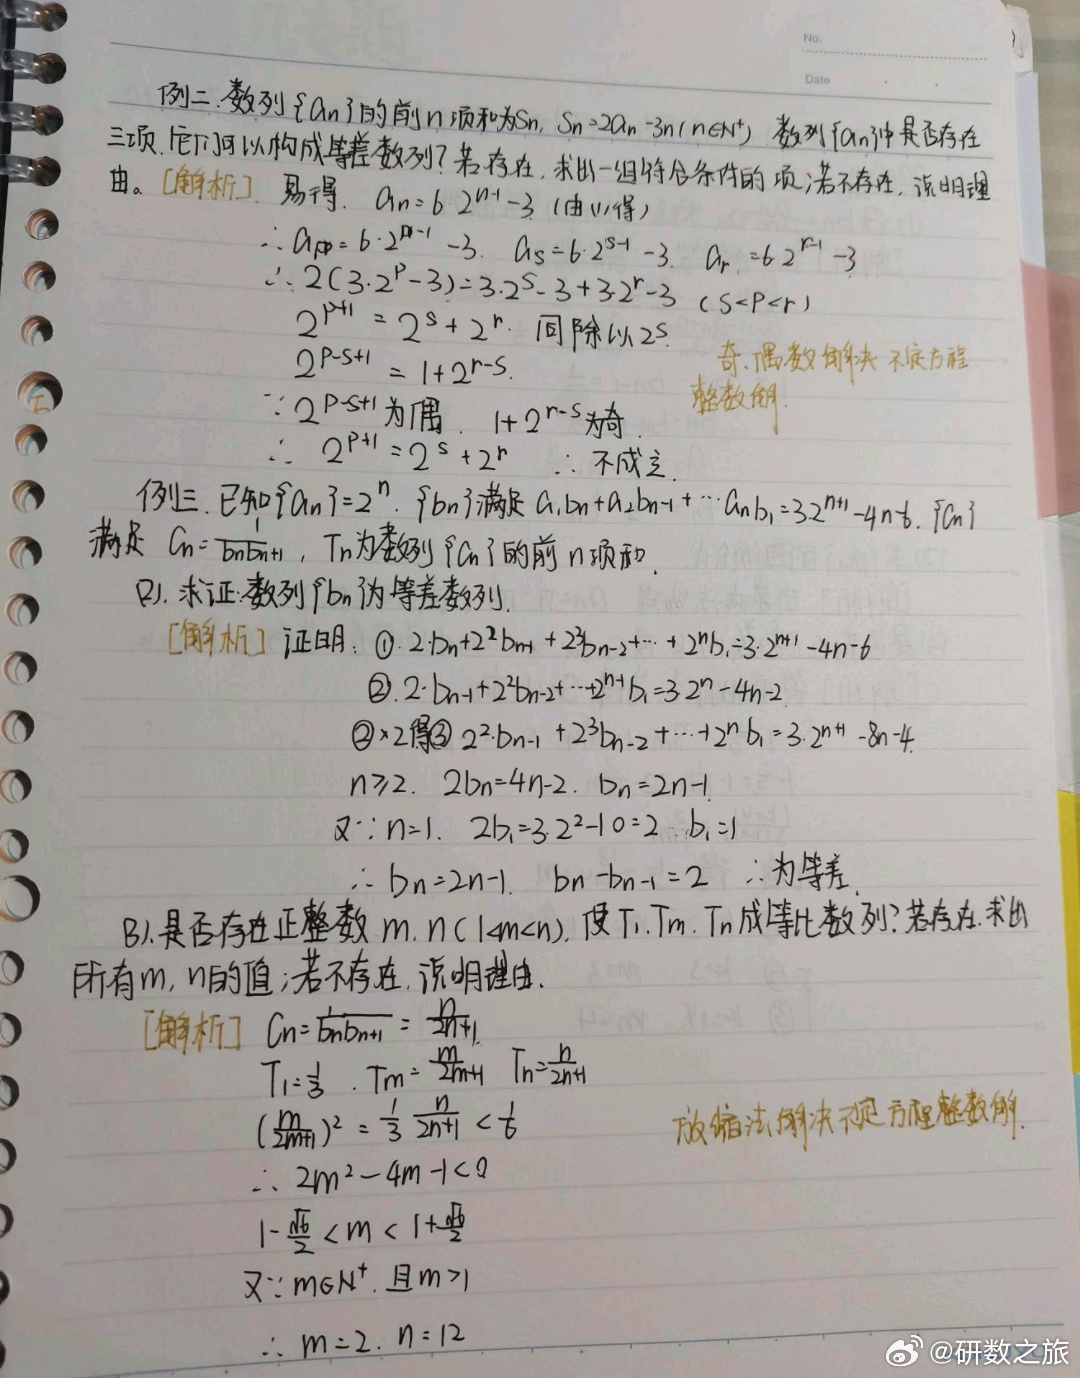 No.
Date
例二.数列{an}的前n项和为Sn, Sn=2an-3n(n∈N+) 数列{an}中是否存在
三项,它们可以构成等差数列?若存在,求出一组符合条件的项;若不存在,说明理
由。[解析] 易得. an=6·2^(n-1)-3 (由(1)得)
∴ap=6·2^(p-1)-3. as=6·2^(s-1)-3. ar=6·2^(r-1)-3
∴2(3·2^p-3)=3·2^s-3+3·2^r-3 (s<p<r)
2^(p+1)=2^s+2^r. 同除以2^s.
2^(p-s+1)=1+2^(r-s).
奇、偶数解决不定方程
整数解.
∵2^(p-s+1)为偶. 1+2^(r-s)为奇.
∴2^(p+1)=2^s+2^r ∴不成立.
例三.已知{an}=2^n. {bn}满足a1bn+a2bn-1+…anb1=3·2^(n+1)-4n-6. {Cn}
满足Cn=1/(bnbn+1), Tn为数列{Cn}的前n项和.
(2).求证:数列{bn}为等差数列.
[解析] 证明: ①.2·bn+2²bn-1+2³bn-2+…+2^n b1=3·2^(n+1)-4n-6
②.2·bn-1+2²bn-2+…+2^(n-1)b1=3·2^n-4n-2.
②×2得③ 2²·bn-1+2³bn-2+…+2^n b1=3·2^(n+1)-8n-4.
n≥2. 2bn=4n-2. bn=2n-1.
又∵n=1. 2b1=3·2²-10=2 ∴b1=1
∴bn=2n-1. bn-bn-1=2 ∴为等差.
(3).是否存在正整数m,n(1<m<n),使T1.Tm.Tn成等比数列?若存在.求出
所有m,n的值;若不存在,说明理由.
[解析] Cn=1/(bnbn+1)=n/(2n+1).
T1=1/3. Tm=m/(2m+1) Tn=n/(2n+1)
(m/(2m+1))²=1/3 n/(2n+1)<1/6
放缩法解决不定方程整数解.
∴2m²-4m-1<0
1-√6/2<m<1+√6/2
又∵m∈N+.且m>1
∴m=2. n=12
@研数之旅